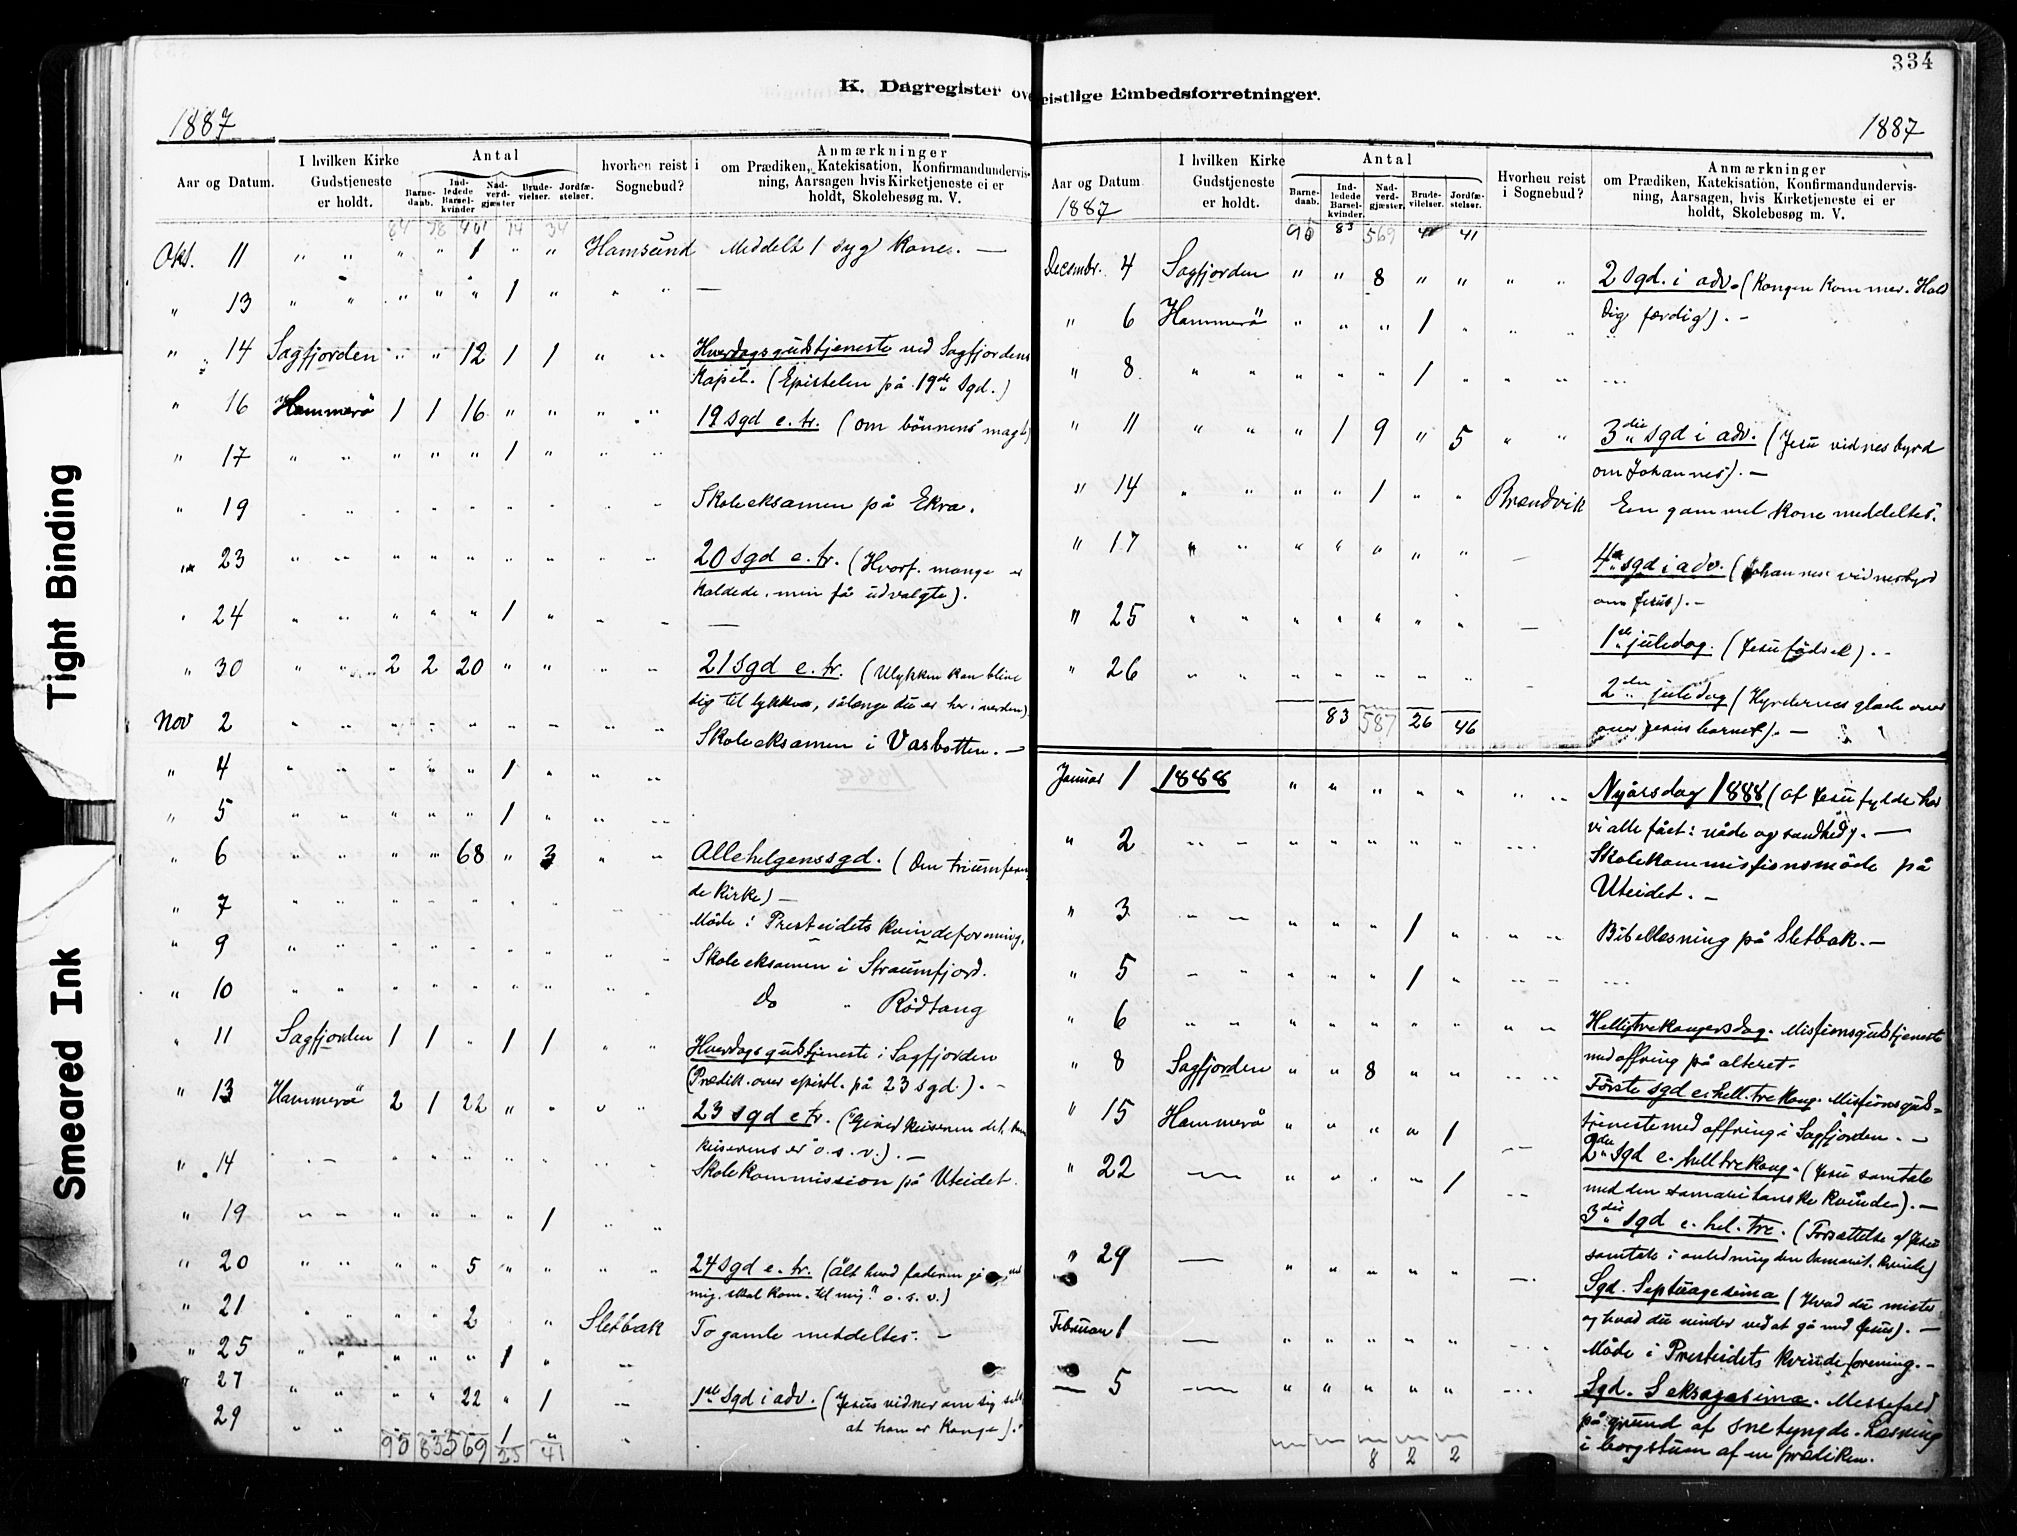 334
K. Dagregister ov
eistlige Embedsforretninger.
1887
Aar og Datum.
I hvilken Kirke
Gudstjeneste
er holdt.
Antal
Barne-
daab.
Ind-
ledede
Barsel-
kvinder
Nad-
verd-
gjæster
Brude-
vielser.
Jordfæ-
stelser.
hvorhen reist i
Sognebud?
Anmærkninger
om Prædiken, Katekisation, Konfirmandundervis-
ning, Aarsagen hvis Kirketjeneste ei er
holdt, Skolebesøg m. V.
Okt. 11 " " " " 1 " " Hamsund Meddelt 1 syg kone. —
" 13 " " " " " 1 " " " —
" 14 Sagfjorden " " 12 1 1 " " Hverdagsgudstjeneste ved Sagfjordens
Kapel. (Epistelen på 19de Sgd.)
" 16 Hammerö 1 1 16 " " " " 19 Sgd e. tr. (om bönnens magt)
" 17 " " " " " 1 " " "
" 19 " " " " " " " " " Skoleeksamen på Ekra.
" 23 " " " " " " " " " 20 Sgd e. tr. (Hvorf. mange er
kaldede, men få udvalgte).
" 24 " " " " " 1 " " " —
" 30 " " 2 2 20 " " " " 21 Sgd e. tr. (Ulykken kan blive
dig til lykke, sålænge du er her i verden).
Nov 2 " " " " " " " Skoleeksamen i Vasbotten. —
" 4 " " " " " 1 " " "
" 5 " " " " " 1 " " "
" 6 " " " " 68 " 3 " " Allehelgenssgd. (Den triumferen-
de kirke) —
" 7 " " " " " " " Möde i Presteidets kvindeforening.
" 9 " " " " " " " Skoleeksamen i Straumfjord.
" 10 " " " " " " " do " Rödtang
" 11 Sagfjorden 1 1 " 1 1 " " Hverdagsgudstjeneste i Sagfjorden
(Prædik. over epistl. på 23 sgd.). —
" 13 Hammerö 2 1 22 " " " " 23 sgd e tr. ("Giver keiseren det, som
keiserens er" o. s. v.). —
" 14 " " " " " " " Skolekommission på Uteidet.
" 19 " " " " " " 1 " "
" 20 " " " " 5 " " " " 24 Sgd e. tr. (Alt hvad faderen gi
mig. skal kom. til mig" o. s. v.)
" 21 " " " " 2 " " Sletbak To gamle meddeltes. —
" 25 " " " " " 1 " "
" 27 " " " " 22 " 1 " 1ste Sgd i adv. (Jesus vidner om sig selv
at han er Konge).
" 29 " " " " " 1 " "
95 83 569 25 41
1887
Aar og Datum
1887
I hvilken Kirke
Gudstjeneste
er holdt.
Antal
Barne-
daab.
Ind-
ledede
Barsel-
kvinder
Nad-
verd-
gjæster
Brude-
vielser.
Jordfæ-
stelser.
Hvorhen reist
i Sognebud?
Anmærkninger
om Prædiken, Katekisation, Konfirmandundervis-
ning, Aarsagen, hvis Kirketjeneste ei er
holdt, Skolebesøg m. V.
Decembr. 4 Sagfjorden " " 8 " " " " 2 Sgd. i adv. (Kongen kommer. Hold
dig færdig). —
" 6 Hammerö " " " 1 " " "
" 8 " " " " " 1 " " "
" 11 " " " 1 9 " 5 " " 3die Sgd i adv. (Jesu vidnesbyrd
om Johannes). —
" 14 " " " " 1 " " Brændvik En gammel kone meddeltes.
" 17 " " " " " " " — 4de Sgd i adv. (Johannes vidnesbyrd
om Jesus). —
" 25 " " " " " " " — 1ste juledag. (Jesu födsel). —
" 26 " " " " " " " — 2den juledag (Hyrdernes glæde over
over Jesus barnet). —
83 587 26 46
Januar 1 1888 " " " " " " " Nyårsdag 1888 (Af Jesu fylde har
vi alle fået: nåde og sandhed). —
" 2 " " " " " " " Skolekommissionsmöde på
Uteidet. —
" 3 " " " " " 1 " " " Bibellæsning på Sletbak. —
" 5 " " " " " 1 " "
" 6 " " " " " " " " " Helligtrekongersdag. Missionsgudstjeneste
med offring på alteret.
" 8 Sagfjorden " " 8 " " Förste sgd e. hell. trekong. Missionsguds-
tjeneste med offring i Sagfjorden. —
" 15 Hammerö " " " " 1 — 2den Sgd e. helltrekong. (Jesu samtale
med den samaritanske kvinde). —
" 22 — " " " " 1 3die Sgd e. hel. tre. (Forsættelse af Jesu
samtale i anledning den Samarit. kvinde)
" 29 — " " " " " — Sgd. Septuagesima (Hvad du mister
og hvad du vinder ved at gå med Jesus). —
Februar 1 — " " " " " Möde i Presteidets kvindeforening. —
— 5 — " " " " " Sgd. Seksagesima. Messefald
på grund af snetyngde. Læsning
i borgstuen af en prædiken.
8 2 2
Tight Binding
Smeared Ink